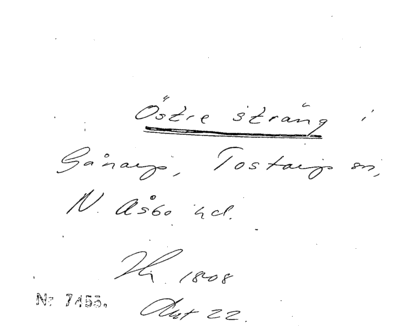 Östre sträng i
Gånarp, Tostarp sn,
N. Åsbo hd.
1808
Akt 22.
Nr 7455.